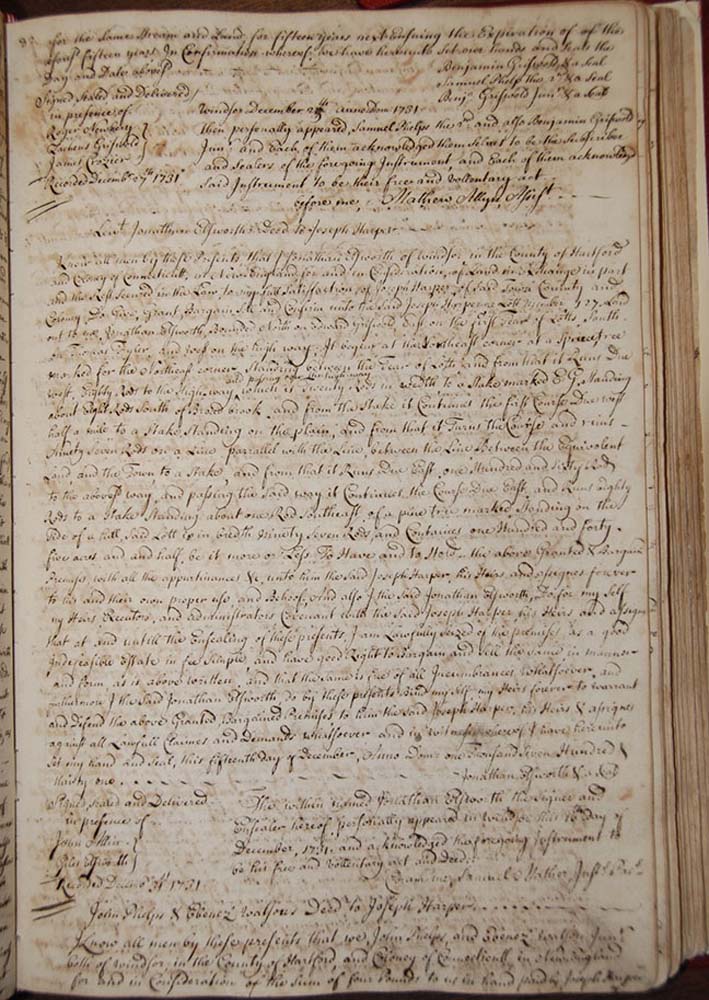 for the Same Stream and Land, for fifteen years next Ensuing the Expiration of of the
afores.d fifteen years. In Confirmation whereof, we have hereunto Set our hands and Seals the
Day and Date aboves.d
Benjamin Griswold & a Seal
Samuel Phelps the 2.d & a Seal
Benj.a Griswold Jun.r & a Seal
Signed Sealed and Delivered
in presence of
Roger Newbery
Zacheus Griswold
James Crozier
Recorded Decemb.r 27.th 1731
Windsor December Anno Dom 1731
then personally appeared, Samuel Phelps the 2.d and also Benjamin Griswold
Jun.r and Each of them acknowledged them Selves to be the Subscribers
and Sealers of the foregoing Instrument and Each of them acknowledged
Said Instrument to be their free and Vollentary act
before me, Mathew Allyn, Assist.
Jonathan Elsworths Deed to Joseph Harper
Know all men by these Presents, that I Jonathan Elsworth of Windsor, in the County of Hartford
and Colony of Connecticutt, in New England, for and in Consideration, of Land in Exchange in part
and the Rest Secured in the Law, to my full Satisfaction, of Joseph Harper, of Said Town County and
Colony, Do Give, Grant, Bargain, Sell and Confirm unto the Said Joseph Harper one Lott Number 27. Laid
out to me, Jonathan Elsworth, Bounded North on Edward Griswold, East on the first Tear of Lotts, South
on Thomas Taylor, and west on the high way, It begins at the Northeast corner at a Sprucetree
marked for the Northeast corner, Standing between the Tears of Lotts and from that it Runs Due
west, Eighty Rods to the Highway and passing the highway, which is Twenty Rods in width to a Stake marked E G, Standing
about Eight Rods South of Broad brook, and from that Stake it Continues the first Course Due west
half a mile to a Stake Standing on the plain, and from that it Turns the Course and runs
Ninety Seven Rods on a Line parralel with the Line, between the Line Between the Equivolent
Land and the Town to a Stake, and from that it Runs Due East, one Hundred and Sixty Rods
to the aboves.d way, and passing the Said way it Continues the Course Due East, and Runs eighty
Rods to a Stake Standing about one Rod Southeast, of a pine tree marked, Standing on the
Side of a hill, Said Lott is in bredth Ninety Seven Rods, and Containes one Hundred and forty
five acres and and half, be it more or Less. To Have and to Hold the above Granted & Bargained
Premises, with all the appurtinances &c, unto him the Said Joseph Harper, his Heirs, and assignes forever
to his and their own proper use, and Behoof, And also I the Said Jonathan Elsworth, Do for my Self
my Heirs Executors, and administrators Covenant with the Said Joseph Harper his Heirs and assigns
that at and untill the Ensealing of these presents, I am Lawfully Seized of the premises as a good
Indefeasible Estate in fee Simple, and have good Right to Bargain and Sell the Same in manner
and form as is above written, and that the Same is free of all Incumbrances Whatsoever, and
furthermore I the Said Jonathan Elsworth, do by these presents Bind my Self, my Heirs forever to warrant
and Defend the above Granted Bargained Premises to him the Said Joseph Harper, his Heirs & assignes
against all Lawfull Claimes and Demands Whatsoever and in Witness whereof I have hereunto
Set my hand and Seal, this fifteenth day of December, Anno Dom: one Thousand Seven Hundred &
thirty one
Jonathan Elsworth & a Seal
Signed Sealed and Delivered
in presence of
John Allin
Giles Elsworth
Recorded Decem.r 1731
The within named Jonathan Elsworth the Signer and
Ensealer hereof, personally appeared in Windsor this day of
December, 1731. and acknowledged the foregoing Instrument to
be his free and Vollentary act and Deed
Coram me, Samuel Mather Just. Pac.
John Phelps & Ebenez.r Watsons Deed to Joseph Harper
Know all men by these presents that we, John Phelps, and Ebenez.r Watson Jun.r
both of Windsor, in the County of Hartford, and Colony of Connecticutt, in New England
for and in Consideration of the Sum of four Pounds to us in hand paid by Joseph Harper